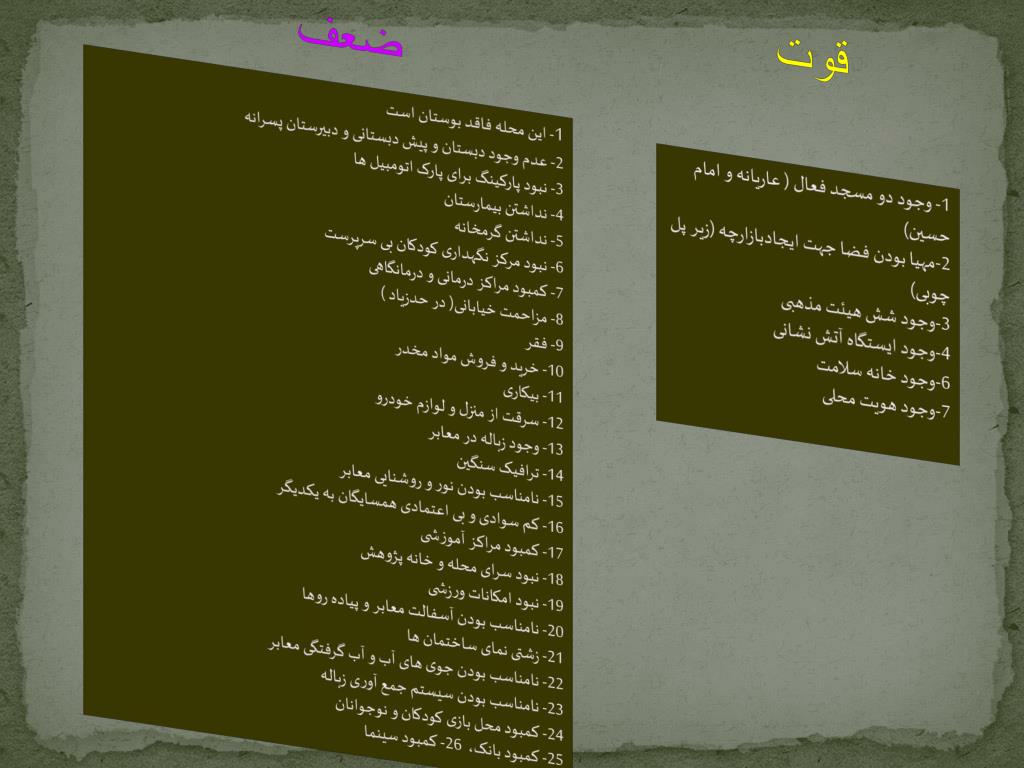 قوت
1- وجود دو مسجد فعال ( عاربانه و امام
حسین)
2-مهیا بودن فضا جهت ایجادبازارچه (زیر پل
چوبی)
3-وجود شش هیئت مذهبی
4-وجود ایستگاه آتش نشانی
6-وجود خانه سلامت
7-وجود هویت محلی
ضعف
1- این محله فاقد بوستان است
2- عدم وجود دبستان و پیش دبستانی و دبیرستان پسرانه
3- نبود پارکینگ برای پارک اتومبیل ها
4- نداشتن بیمارستان
5- نداشتن گرمخانه
6- نبود مرکز نگهداری کودکان بی سرپرست
7- کمبود مراکز درمانی و درمانگاهی
8- مزاحمت خیابانی( در حدزیاد )
9- فقر
10- خرید و فروش مواد مخدر
11- بیکاری
12- سرقت از منزل و لوازم خودرو
13- وجود زباله در معابر
14- ترافیک سنگین
15- نامناسب بودن نور و روشنایی معابر
16- کم سوادی و بی اعتمادی همسایگان به یکدیگر
17- کمبود مراکز آموزشی
18- نبود سرای محله و خانه پژوهش
19- نبود امکانات ورزشی
20- نامناسب بودن آسفالت معابر و پیاده روها
21- زشتی نمای ساختمان ها
22- نامناسب بودن جوی های آب و آب گرفتگی معابر
23- نامناسب بودن سیستم جمع آوری زباله
24- کمبود محل بازی کودکان و نوجوانان
25- کمبود بانک، 26- کمبود سینما